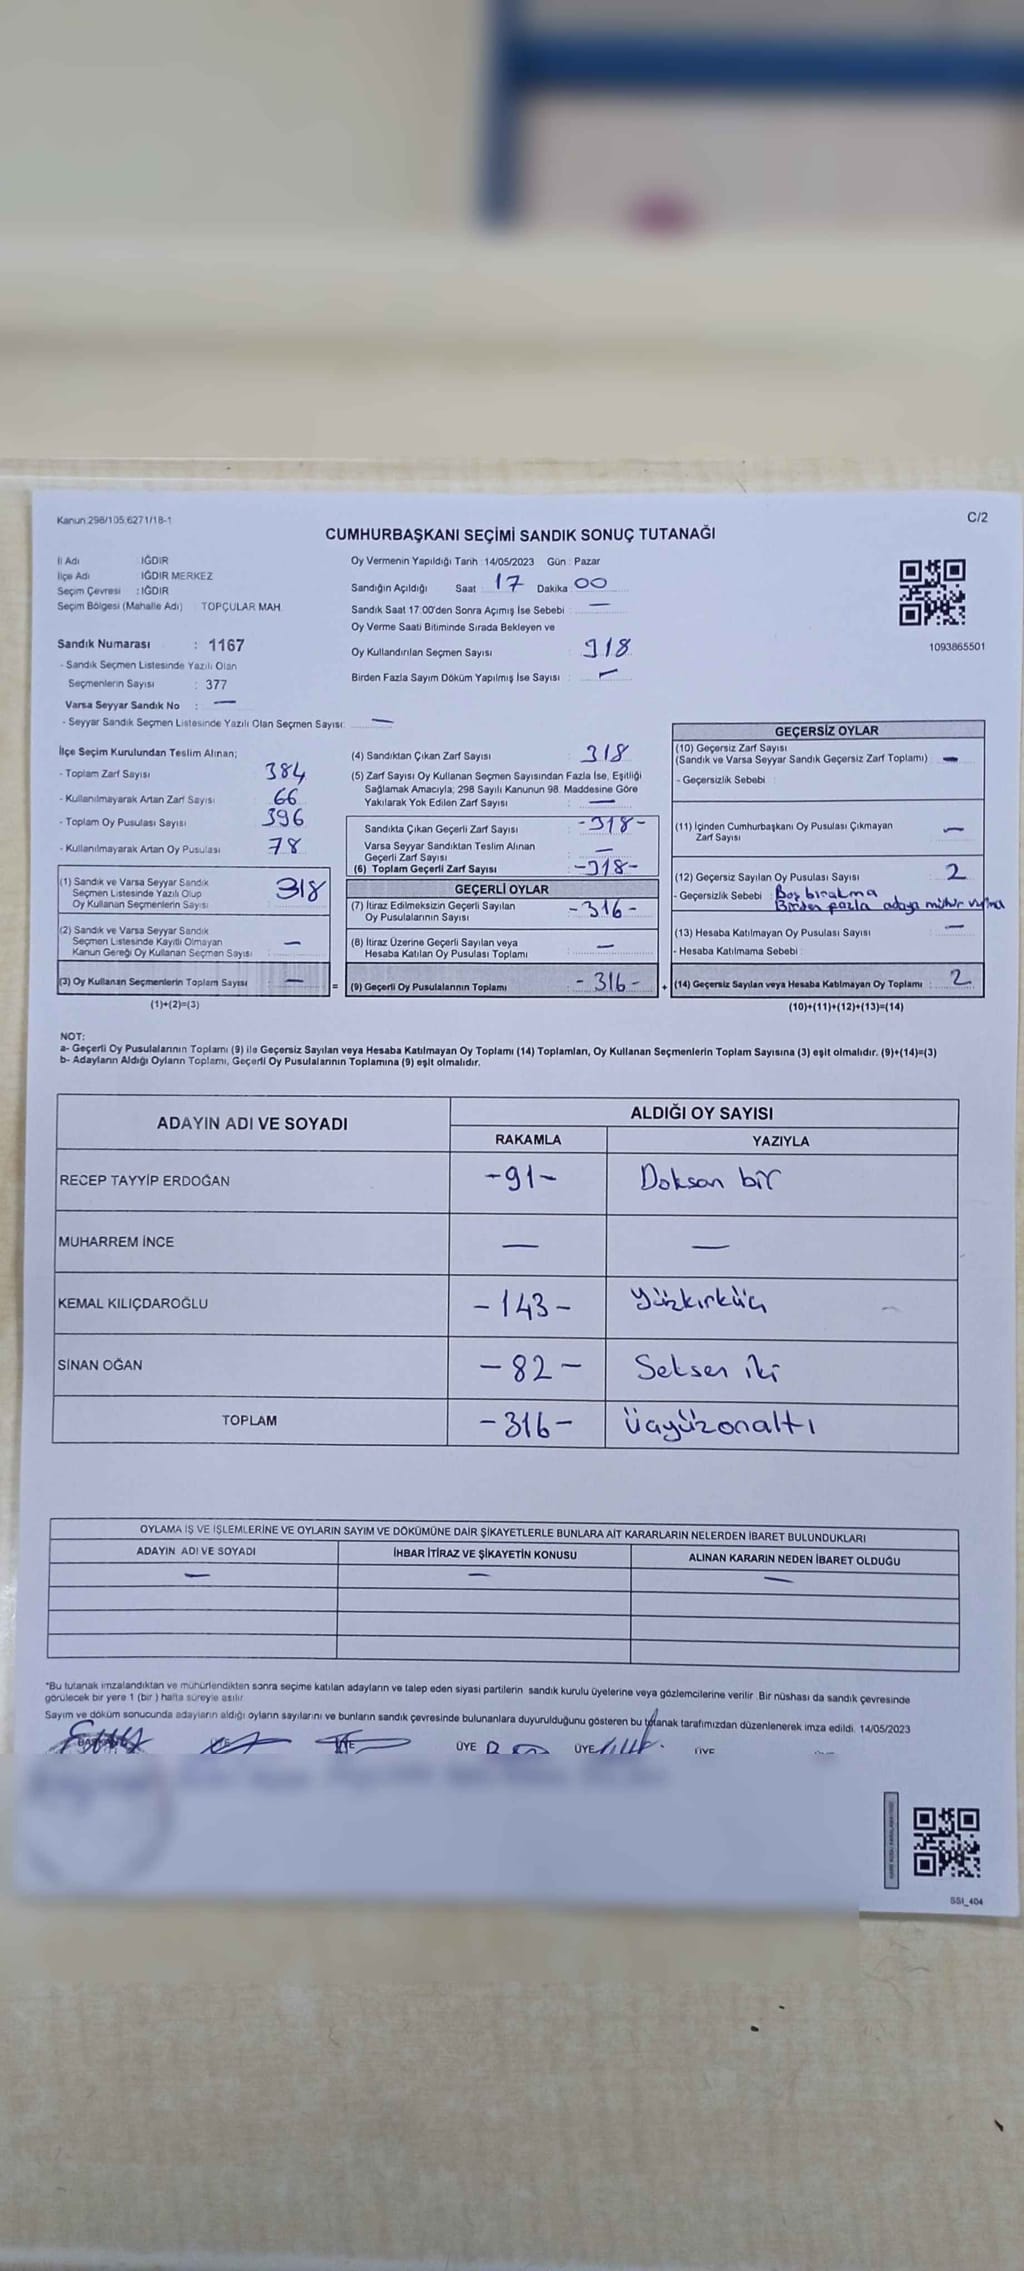 Kanun:298/105.6271/18-1
C/2
CUMHURBAŞKANI SEÇİMİ SANDIK SONUÇ TUTANAĞI
İl Adı : IĞDIR
İlçe Adı IĞDIR MERKEZ
Seçim Çevresi : IĞDIR
Seçim Bölgesi (Mahalle Adı) TOPÇULAR MAH.
Oy Vermenin Yapıldığı Tarih : 14/05/2023 Gün : Pazar
Sandığın Açıldığı Saat : 17 Dakika 00
Sandık Saat 17:00'den Sonra Açımış İse Sebebi : —
Oy Verme Saati Bitiminde Sırada Bekleyen ve
Oy Kullandırılan Seçmen Sayısı : 318
Birden Fazla Sayım Döküm Yapılmış İse Sayısı : —
1093865501
Sandık Numarası : 1167
- Sandık Seçmen Listesinde Yazılı Olan
Seçmenlerin Sayısı : 377
Varsa Seyyar Sandık No : —
- Seyyar Sandık Seçmen Listesinde Yazılı Olan Seçmen Sayısı: —
İlçe Seçim Kurulundan Teslim Alınan;
- Toplam Zarf Sayısı 384
- Kullanılmayarak Artan Zarf Sayısı 66
- Toplam Oy Pusulası Sayısı 396
- Kullanılmayarak Artan Oy Pusulası 78
(1) Sandık ve Varsa Seyyar Sandık
Seçmen Listesinde Yazılı Olup
Oy Kullanan Seçmenlerin Sayısı 318
(2) Sandık ve Varsa Seyyar Sandık
Seçmen Listesinde Kayıtlı Olmayan
Kanun Gereği Oy Kullanan Seçmen Sayısı —
(3) Oy Kullanan Seçmenlerin Toplam Sayısı —
(1)+(2)=(3)
(4) Sandıktan Çıkan Zarf Sayısı 318
(5) Zarf Sayısı Oy Kullanan Seçmen Sayısından Fazla İse, Eşitliği
Sağlamak Amacıyla; 298 Sayılı Kanunun 98. Maddesine Göre
Yakılarak Yok Edilen Zarf Sayısı —
Sandıkta Çıkan Geçerli Zarf Sayısı -318-
Varsa Seyyar Sandıktan Teslim Alınan
Geçerli Zarf Sayısı —
(6) Toplam Geçerli Zarf Sayısı -318-
GEÇERLİ OYLAR
(7) İtiraz Edilmeksizin Geçerli Sayılan
Oy Pusulalarının Sayısı -316-
(8) İtiraz Üzerine Geçerli Sayılan veya
Hesaba Katılan Oy Pusulası Toplamı —
= (9) Geçerli Oy Pusulalarının Toplamı -316-
GEÇERSİZ OYLAR
(10) Geçersiz Zarf Sayısı
(Sandık ve Varsa Seyyar Sandık Geçersiz Zarf Toplamı) —
- Geçersizlik Sebebi :
(11) İçinden Cumhurbaşkanı Oy Pusulası Çıkmayan
Zarf Sayısı —
(12) Geçersiz Sayılan Oy Pusulası Sayısı 2
- Geçersizlik Sebebi : Boş bırakma
Birden fazla adaya mühür vurma
(13) Hesaba Katılmayan Oy Pusulası Sayısı —
- Hesaba Katılmama Sebebi :
+ (14) Geçersiz Sayılan veya Hesaba Katılmayan Oy Toplamı 2
(10)+(11)+(12)+(13)=(14)
NOT:
a- Geçerli Oy Pusulalarının Toplamı (9) ile Geçersiz Sayılan veya Hesaba Katılmayan Oy Toplamı (14) Toplamları, Oy Kullanan Seçmenlerin Toplam Sayısına (3) eşit olmalıdır. (9)+(14)=(3)
b- Adayların Aldığı Oyların Toplamı, Geçerli Oy Pusulalarının Toplamına (9) eşit olmalıdır.
ADAYIN ADI VE SOYADI
ALDIĞI OY SAYISI
RAKAMLA YAZIYLA
RECEP TAYYİP ERDOĞAN -91- Doksan bir
MUHARREM İNCE — —
KEMAL KILIÇDAROĞLU -143- Yüzkırküç
SİNAN OĞAN -82- Seksen iki
TOPLAM -316- Üçyüzonaltı
OYLAMA İŞ VE İŞLEMLERİNE VE OYLARIN SAYIM VE DÖKÜMÜNE DAİR ŞİKAYETLERLE BUNLARA AİT KARARLARIN NELERDEN İBARET BULUNDUKLARI
ADAYIN ADI VE SOYADI İHBAR İTİRAZ VE ŞİKAYETİN KONUSU ALINAN KARARIN NEDEN İBARET OLDUĞU
— — —
*Bu tutanak imzalandıktan ve mühürlendikten sonra seçime katılan adayların ve talep eden siyasi partilerin sandık kurulu üyelerine veya gözlemcilerine verilir. Bir nüshası da sandık çevresinde
görülecek bir yere 1 (bir ) hafta süreyle asılır.
Sayım ve döküm sonucunda adayların aldığı oyların sayılarını ve bunların sandık çevresinde bulunanlara duyurulduğunu gösteren bu tutanak tarafımızdan düzenlenerek imza edildi. 14/05/2023
ÜYE ÜYE ÜYE
SSI_404